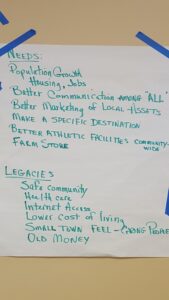 NEEDS:
Population Growth
Housing, Jobs
Better Communication AMONG "ALL"
Better Marketing of LOCAL ASSETS
MAKE A SPECIFIC DESTINATION
BETTER ATHLETIC FACILITIES COMMUNITY-
WIDE
FARM STORE
LEGACIES
Safe community
Health care
Internet Access
Lower Cost of living
SMALL TOWN FEEL - GOOD PEOPLE
OLD MONEY